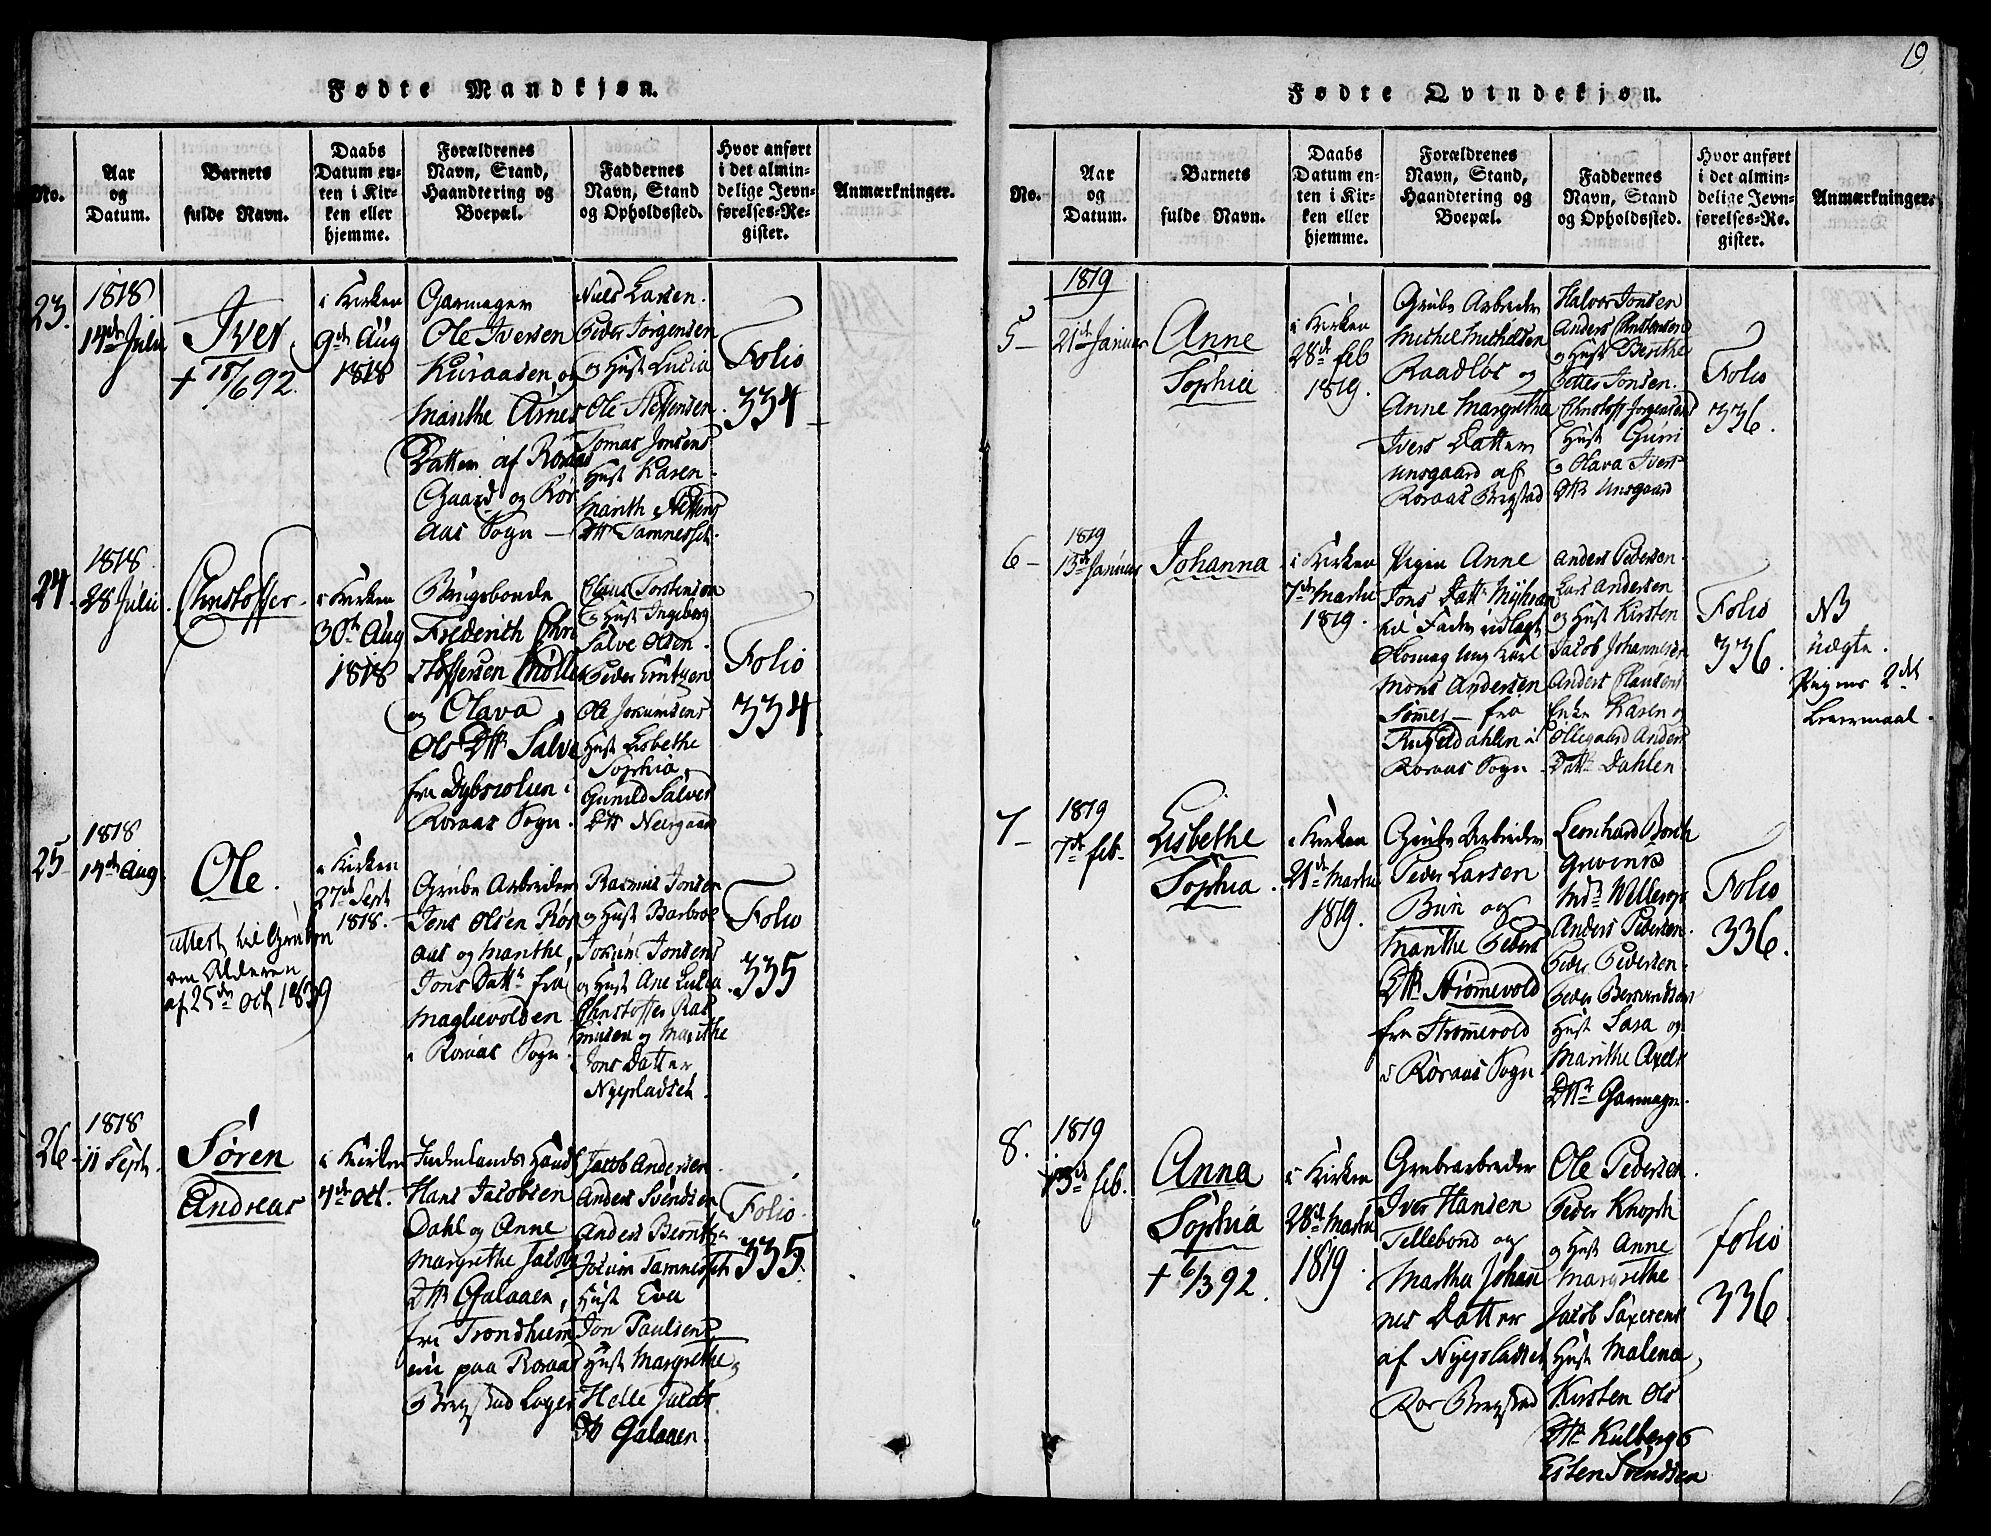 Fødte Mandkjøn.
No.
Aar
og
Datum.
Barnets
fulde Navn.
Daabs
Datum en-
ten i Kir-
ken eller
hjemme.
Forældrenes
Navn, Stand,
Haandtering og
Boepæl.
Faddernes
Navn, Stand
og Opholdssted.
Hvor anført
i det almin-
delige Jevn-
førelses-Re-
gister.
Anmærkninger.
23.
1818
14de Julii
Iver
+ 18/6 92.
i Kirken
9de Aug
1818
Garmager
Ole Iversen
Kuraasen, og
Marithe Arnes
Datter af Roraas
Gaard og Rør
aas Sogn —
Niels Larsen.
Peder Jørgensen
og Hust Lucia
Ole Steffensen.
Tomas Jonsens
Hust Karen
Marith Steffens
Dttr Tamnes
Folio
334
24.
1818
28 Julii
Christoffer
i Kirken
30te Aug
1818
Brugsbonde
Frederich Chri
stoffersen Mølle
og Olava
Ols Dttr Salve
fra Dybsiolien i
Roraas Sogn.
Claus Torstenson
og Hust Ingeborg
Salve Olsen
Peder
Ole Jokumsens
Hust Lisbethe
Sophia,
Gunild Salves
Dttr Neergaard
Folio
334
25
1818
14de Aug
Ole.
Attest til Gruben
om Alderen
af 25de Oct 1839
i Kirken
27de Sept
1818.
Grube Arbeider
Jens Olsen Rør
aas og Marithe,
Jons Dattr fra
Maglievolden
i Roraas Sogn.
Rasmus Jonsen
og Hust Barbroe
Jokum Jonsens
og Hust Ane Lucia
Christoffer Ras
musen og Marithe
Jons Datter
Nyepladset.
Folio
335
26
1818
11 Septr.
Søren
Andreas
i Kirken
4de Oct.
Indenlands Handl
Hans Jacobsen
Dahl og Anne
Margrethe Jacobs
Dttr Galaaen,
fra Trondhiem
nu paa Roraas
Bergstad Loger
Jacob Andersen
Anders Svendsen
Anders
Jokum Tamnes
Hust Eva
Jon Paulsens
Hust Margrethe,
Helle Jacobs
Dtr Galaaen.
Folio
335.
19
Fødte Qvindekjøn.
No.
Aar
og
Datum.
Barnets
fulde Navn.
Daabs
Datum en-
ten i Kir-
ken eller
hjemme.
Forældrenes
Navn, Stand,
Haandtering og
Boepæl.
Faddernes
Navn, Stand
og Opholdssted.
Hvor anført
i det almin-
delige Jevn-
førelses-Re-
gister.
Anmærkninger.
5
1819
21de Januar
Anne
Sophia
i Kirken
28de feb
1819.
Grube Arbeider
Michel Michelsen
Raadløs og
Anne Margrethe
Ivers Datter
Unsgaard af
Roraas Bergstad
Halvor Jonsen
Anders Christensen
og Hust Berethe
Petter Jonsen.
Christoff Jørgensens
Hust Guri
og Olava Ivers
Dttr Unsgaard
Folio
336.
6
1819
13de Januar
Johanna
i Kirken
7de Martii
1819.
Pigen Anne
Jons Dattr
til Fader udlagt
Mons Andersen
Sømes — fra
Rugeldahlen i
Roraas Sogn
Anders Pedersen
Lars Andersen
og Hust Kirsten
Jacob Johannesen
Anders Clausens
Enke Karen og
Ollegaard Anders
Dattr Dahlen
Folio
336.
NB
Uægte.
Pigens 2det
Leiermaal.
7
1819
7de feb.
Lisbethe
Sophia.
i Kirken
21de Martii
1819.
Grube Arbeider
Peder Larsen
Buu og
Marithe Peders
Dttr Strømevold
fra Strømevold
i Røraas Sogn
Leonhard Borch
Anders Pedersen.
Peder Pedersen
Peder Bersvendsens
Hust Sara og
Marithe Axels
Dttr Garmager.
Folio
336.
8.
1819
13de feb.
Anna
Sophia
+ 6/3 92.
i Kirken
28de Martii
1819.
Grubearbeider
Iver Hansen
Tellebond og
Martha Johan
nes Datter
af Nyepladset
Ror Bergstad
Ole Pedersen
Peder Knoph
og Hust Anne
Margrethe
Jacob Saxesens
Hust Malena,
Kirsten Ols
Dttr Kulberg &
Esten Svendsen
folio
336